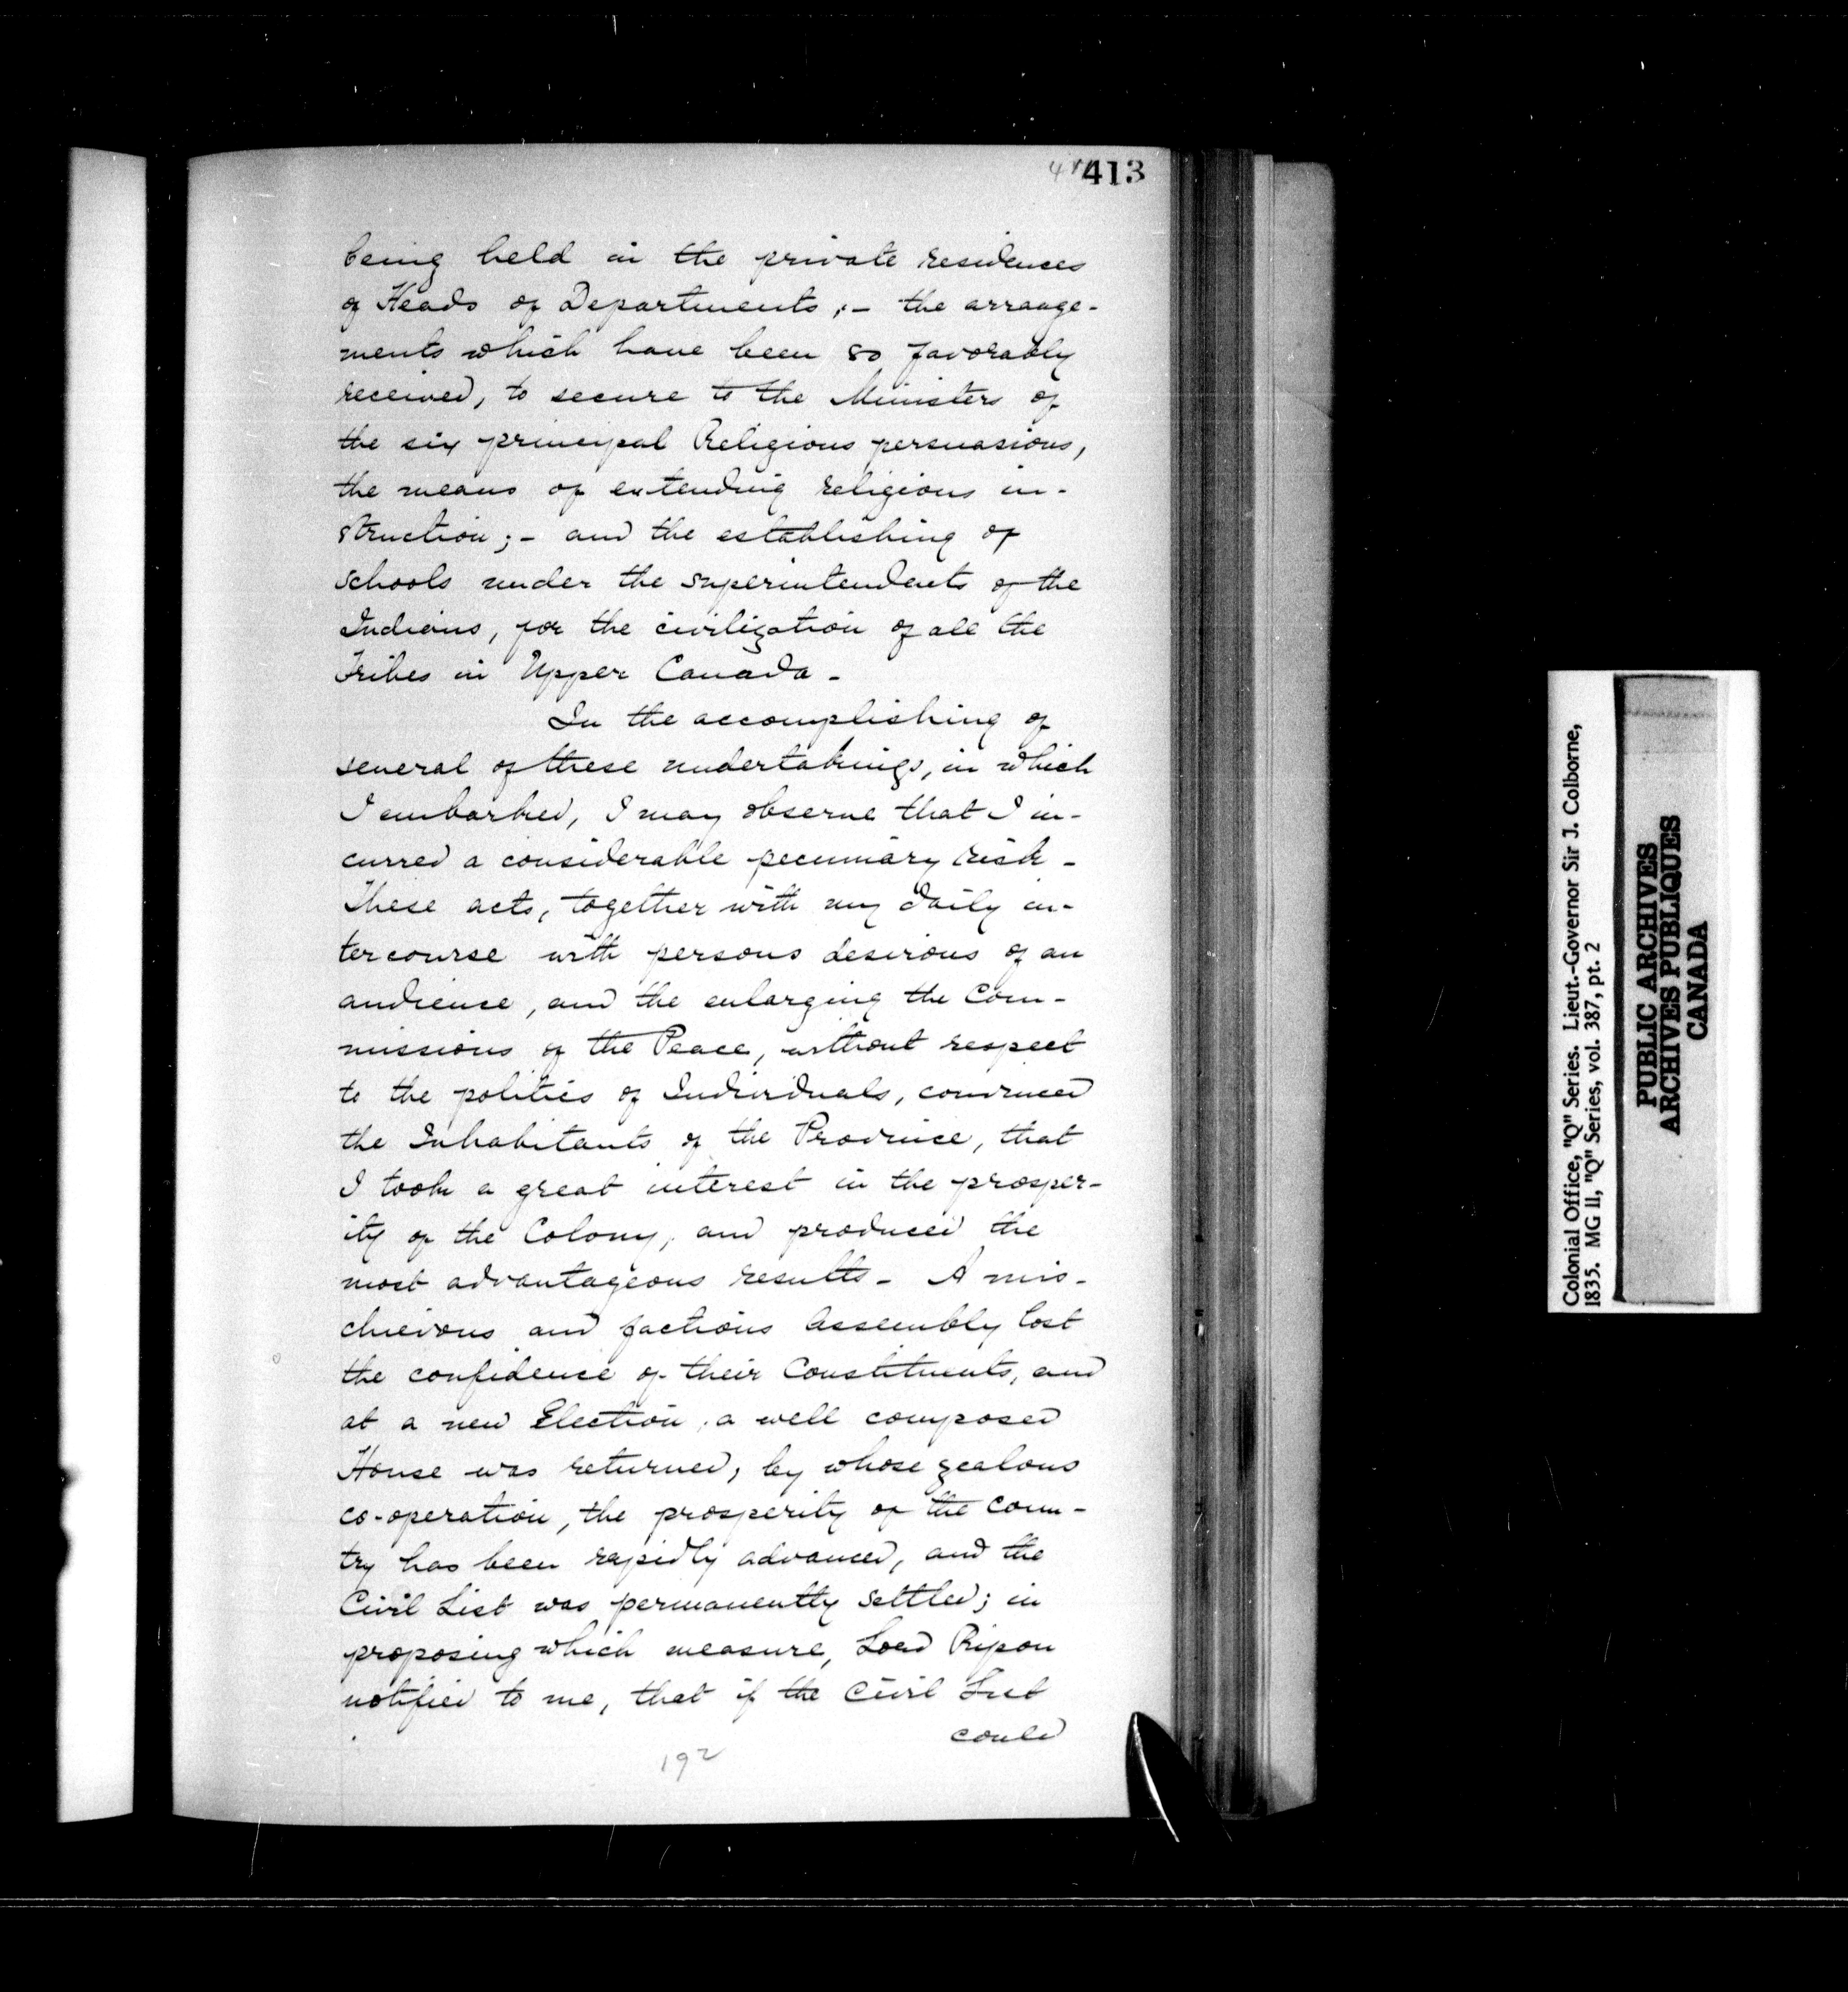 413
being held in the private residences
of Heads of Departments;- the arrange-
ments which have been so favorably
received, to secure to the Ministers of
the six principal Religious persuasions,
the means of extending religious in-
struction;- and the establishing of
schools under the superintendents of the
Indians, for the civilization of all the
Tribes in Upper Canada-
In the accomplishing of
several of these undertakings, in which
I embarked, I may observe that I in-
curred a considerable pecuniary risk-
These acts, together with my daily in-
tercourse with persons desirous of an
audience, and the enlarging the Com-
missions of the Peace, without respect
to the politics of Individuals, convinced
the Inhabitants of the Province, that
I took a great interest in the prosper-
ity of the Colony, and produced the
most advantageous results- A mis-
chievous and factious Assembly lost
the confidence of their Constituents, and
at a new Election, a well composed
House was returned, by whose zealous
co-operation, the prosperity of the Coun-
try has been rapidly advanced, and the
Civil List was permanently settled; in
proposing which measure, Lord Ripon
notified to me, that if the Civil List
could
192
Colonial Office, "Q" Series. Lieut.-Governor Sir J. Colborne,
1835. MG 11, "Q" Series, vol. 387, pt. 2
PUBLIC ARCHIVES
ARCHIVES PUBLIQUES
CANADA